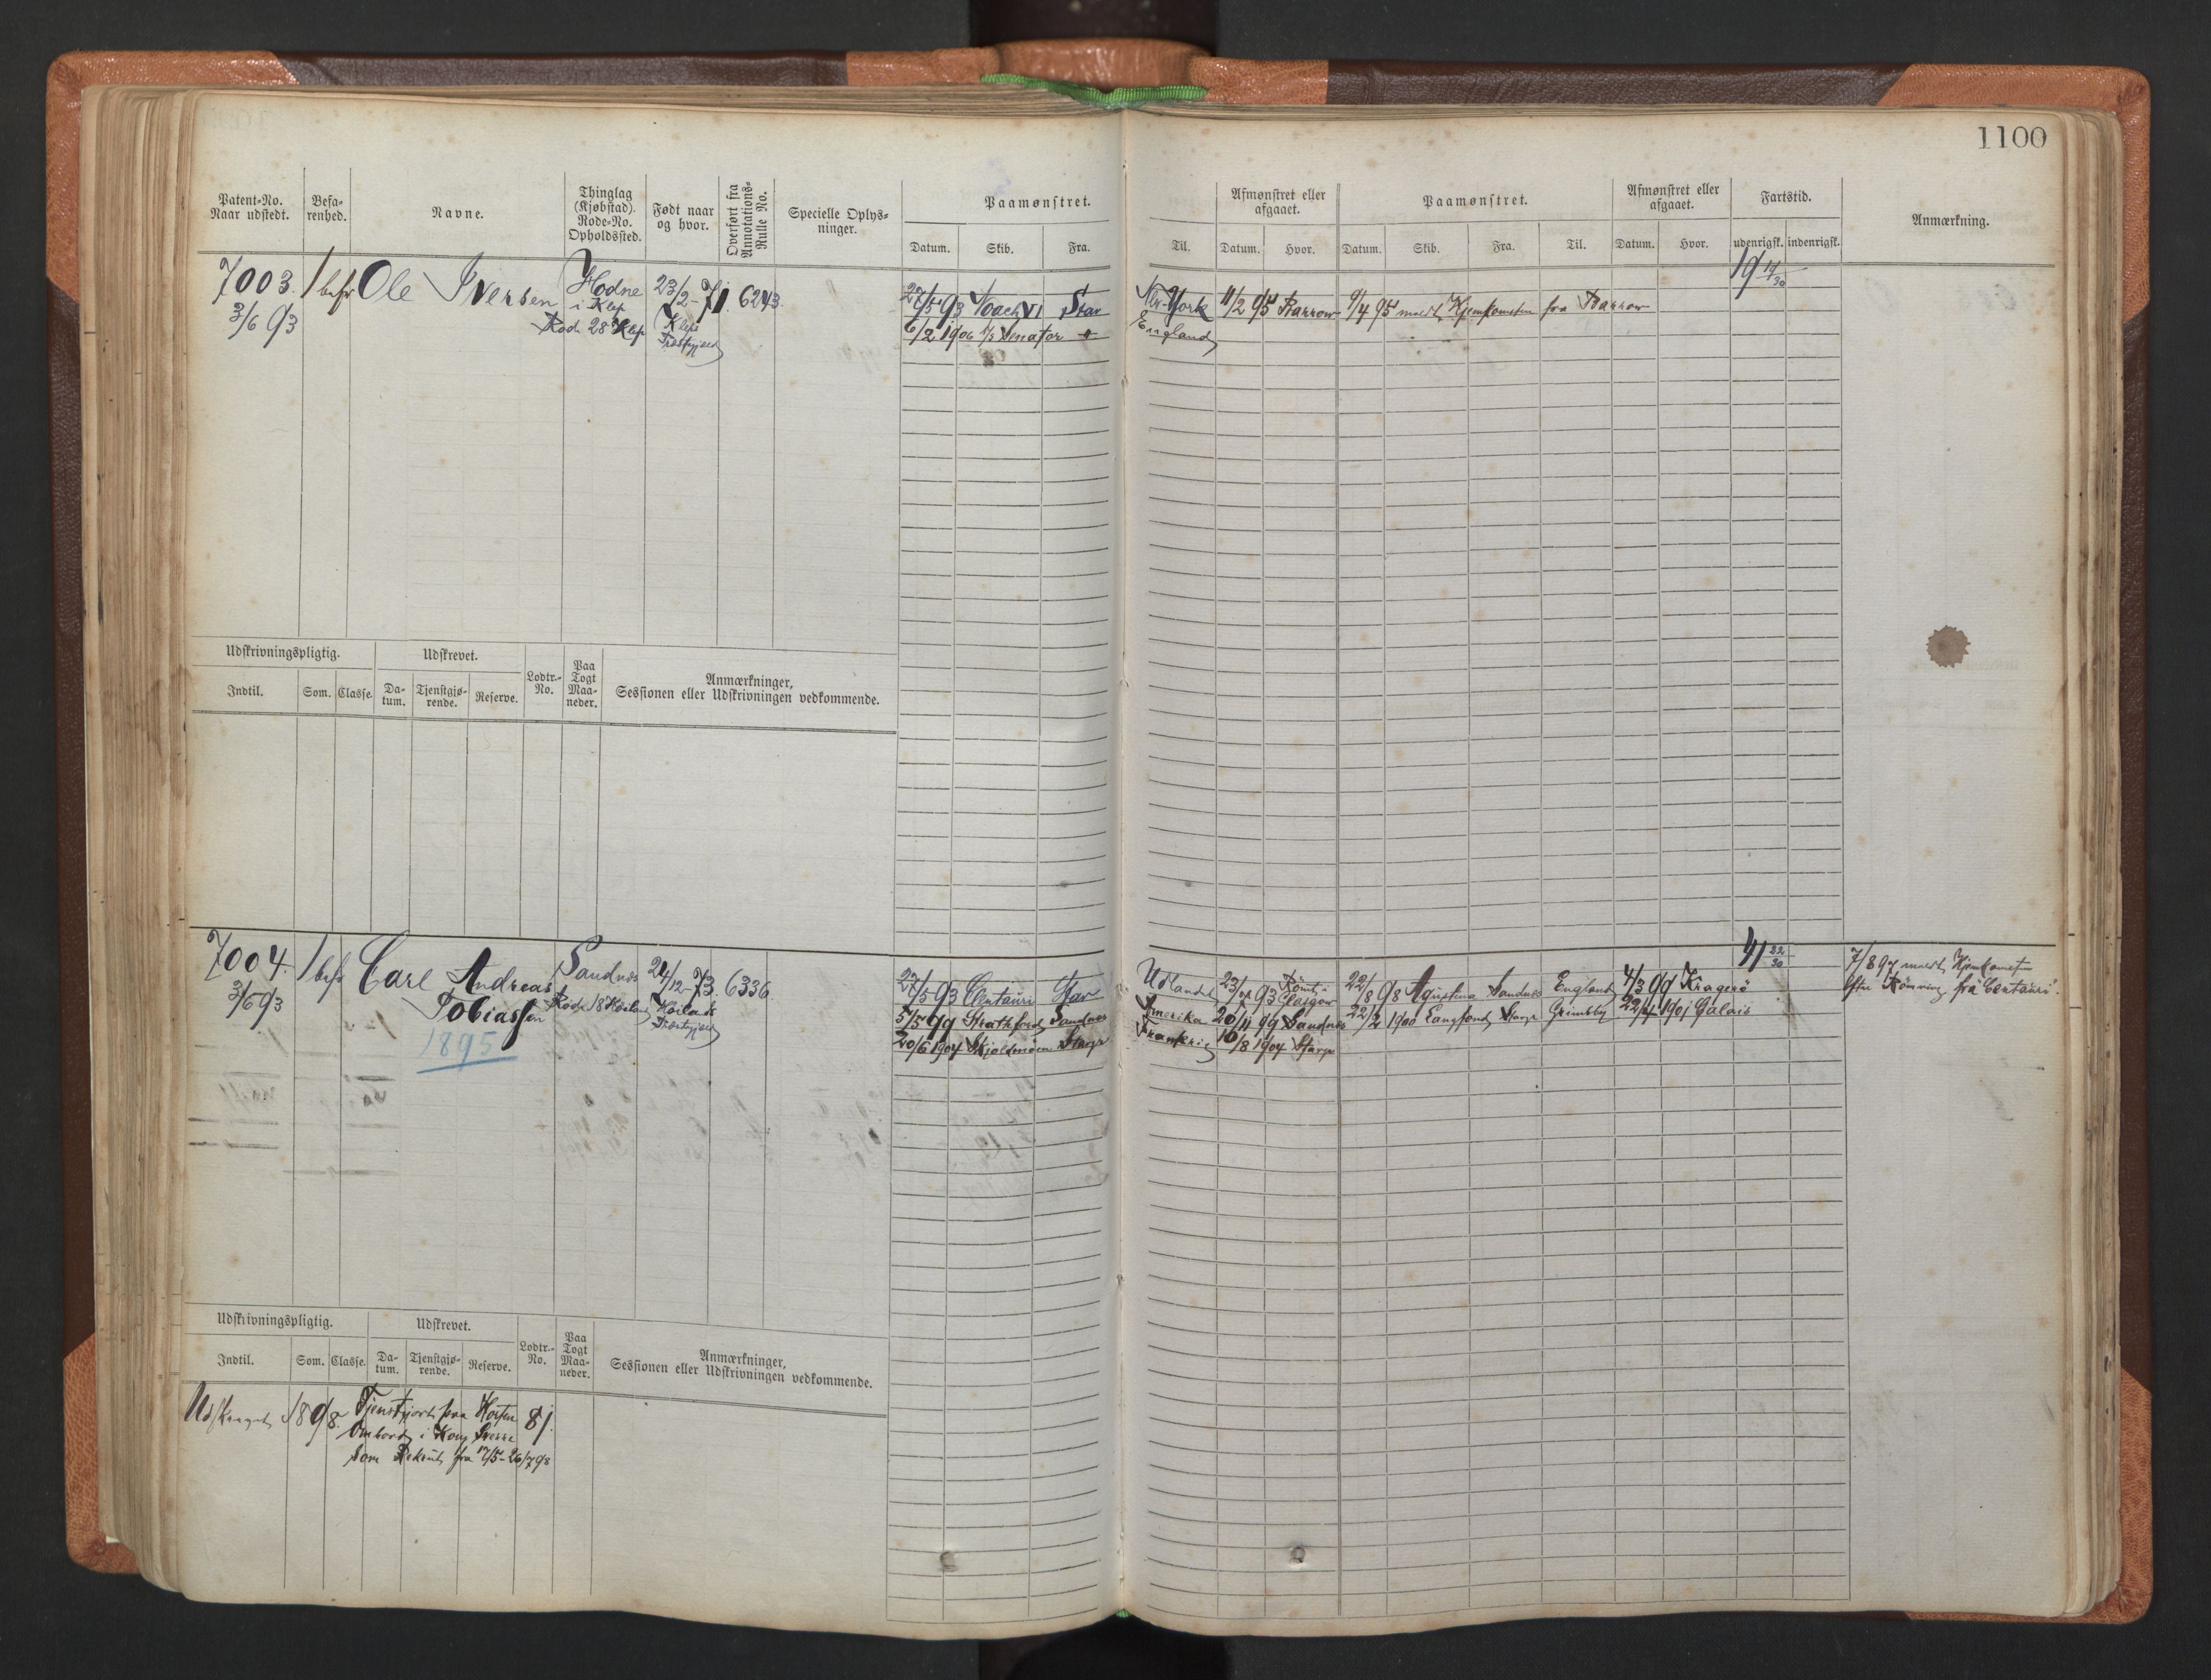 1100
Patent-No.
Naar udstedt.
Befa-
renhed.
Navne.
Thinglag
(Kjøbstad).
Rode-No.
Opholdssted.
Født naar
og hvor.
Overført fra
Annotations-
Rulle No.
Specielle Oplys-
ninger.
Paamønstret.
Datum. Skib. Fra.
Til.
Afmønstret eller
afgaaet.
Datum. Hvor.
Paamønstret.
Datum. Skib. Fra. Til.
Afmønstret eller
afgaaet.
Datum. Hvor.
Fartstid.
udenrigsk. indenrigsk.
Anmærkning.
7003
3/6 93
1 bef
Ole Iversen
Hodne
i Klep
Rode 28 Klep
23/2-71
Klep
Præstgjæld
6243
27/5 93 Noach VI Stav
6/2 1906 Senator
New-York
England
11/2 95 Barrow
9/4 95 Hjemkomsten fra Barrow
19 11/30
Udskrivningspligtig.
Indtil. Som. Classe.
Udskrevet.
Da-
tum.
Tjenstgjø-
rende.
Reserve.
Lodtr.-
No.
Paa
Togt
Maa-
neder.
Anmærkninger,
Sessionen eller Udskrivningen vedkommende.
7004
3/6 93
1 bef
Carl Andreas
Tobiassen
1895
Sandnæs
Rode 18 Høiland
24/12-73
Høilands
Præstgjæld
6336
27/5 93 Centauri Stav
5/5 99 Strathford Sandnæs
20/6 1904 Skjoldmøen Stavgr
Udlandet
Amerika
Frankrig
93 Rømt i
Glasgow
20/11 99 Sandnæs
10/8 1904 Stavgr
22/8 98 Agustina Sandnæs England
22/2 1900 Langfond Stavgr Grimsby
4/3 99 Kragerø
1901 Calais
41 22/30
7/8 97 Hjemkomsten
efter Rømning fra Centauri.
Udskrivningspligtig.
Indtil. Som. Classe.
Udskrevet.
Da-
tum.
Tjenstgjø-
rende.
Reserve.
Lodtr.-
No.
Paa
Togt
Maa-
neder.
Anmærkninger,
Sessionen eller Udskrivningen vedkommende.
1898
Tjenstgjort paa Horten
Ombord i Kong Sverre
som Rekrut fra 17/5-26/7 98
81.